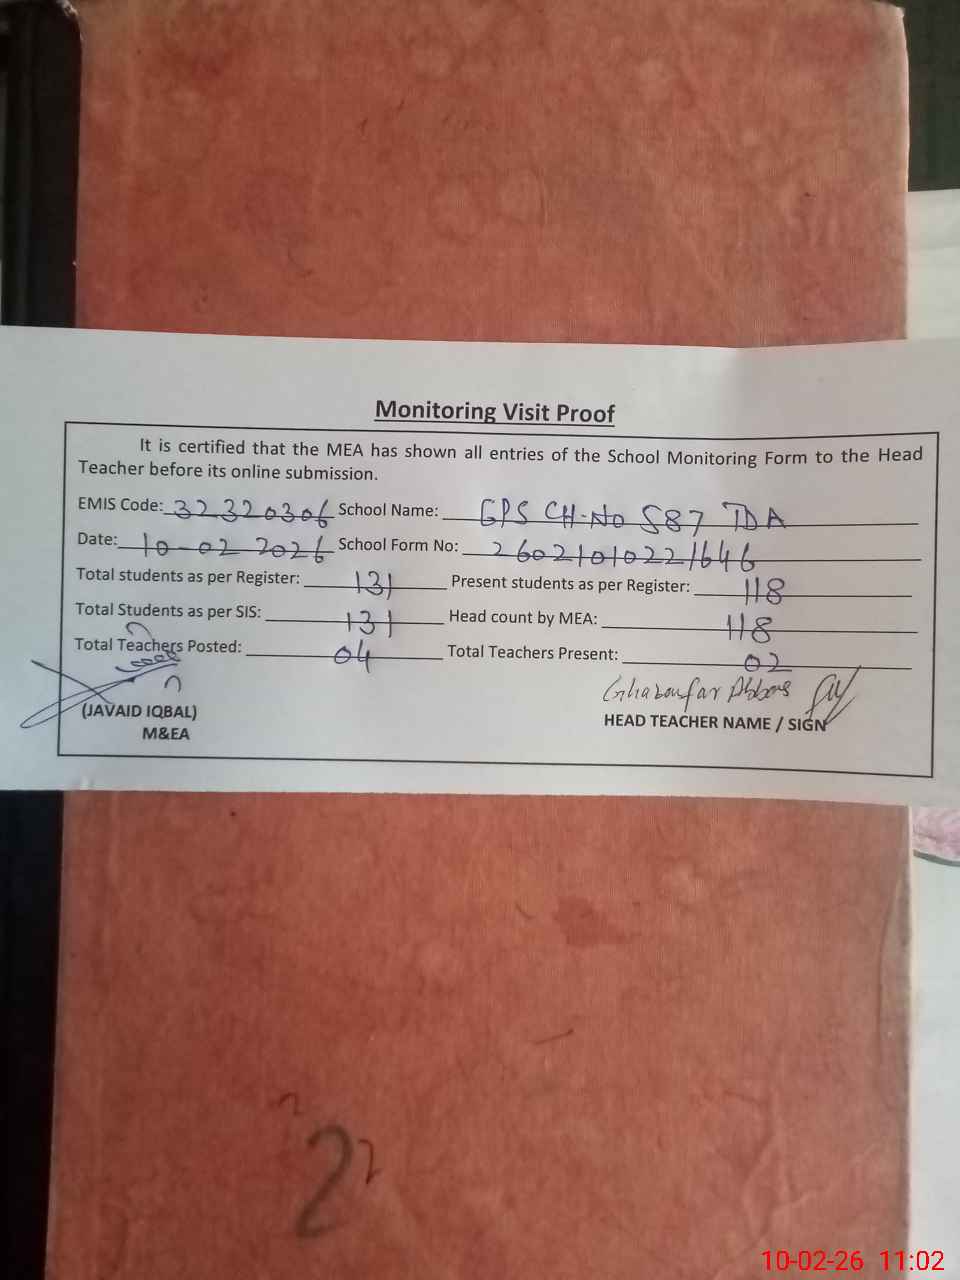 Monitoring Visit Proof
It is certified that the MEA has shown all entries of the School Monitoring Form to the Head
Teacher before its online submission.
EMIS Code: 32320306 School Name: GPS CH-No 587 TDA
Date: 10-02-2026 School Form No: 26021010221646
Total students as per Register: 131 Present students as per Register: 118
Total Students as per SIS: 131 Head count by MEA: 118
Total Teachers Posted: 04 Total Teachers Present: 02
Abbas
(JAVAID IQBAL) HEAD TEACHER NAME / SIGN
M&EA
2
10-02-26 11:02